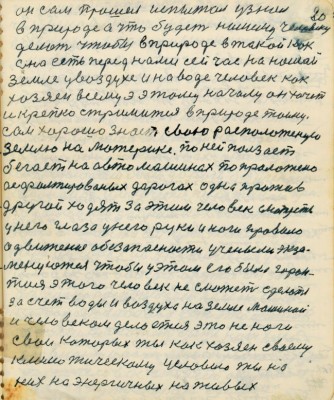 он сам прошел испытал узнал
20
в природе а что будет нашему человеку
делат чтобы в природе в такой как
она есть перед нами сейчас на нашай
земле у воздухе и на воде человек как
хозяен всему э этому началу он хочит
и крепко стримится в природе тому
сам хорошо знает свою расположеную
землю на материке. по ней ползает
бегает на автомашинах по праложено
асфалтированых дорогах одна против
другой ходят за этим человек
у него глаза у него руки и ноги правило
а движению обезапасности учение экза-
менуются чтобы у этом его была гаран-
тия этого человек не сможет сделать
за счет воды и воздуха на земле машиной
и человеком делается это не ноги
свои которых ты как хозяен своему
климотическому условию ты на
них на энергичных на живых